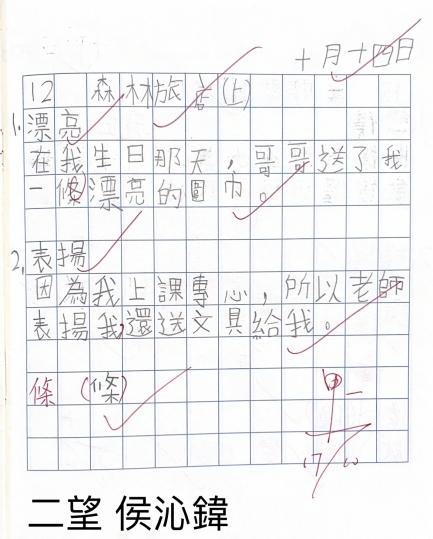 十月十四日
12 森林旅店(上)
1. 漂亮
在我生日那天，哥哥送了我
一條漂亮的圍巾。
2. 表揚
因為我上課專心，所以老師
表揚我，還送文具給我。
條 (條)
甲
17/10
二望 侯沁鍏